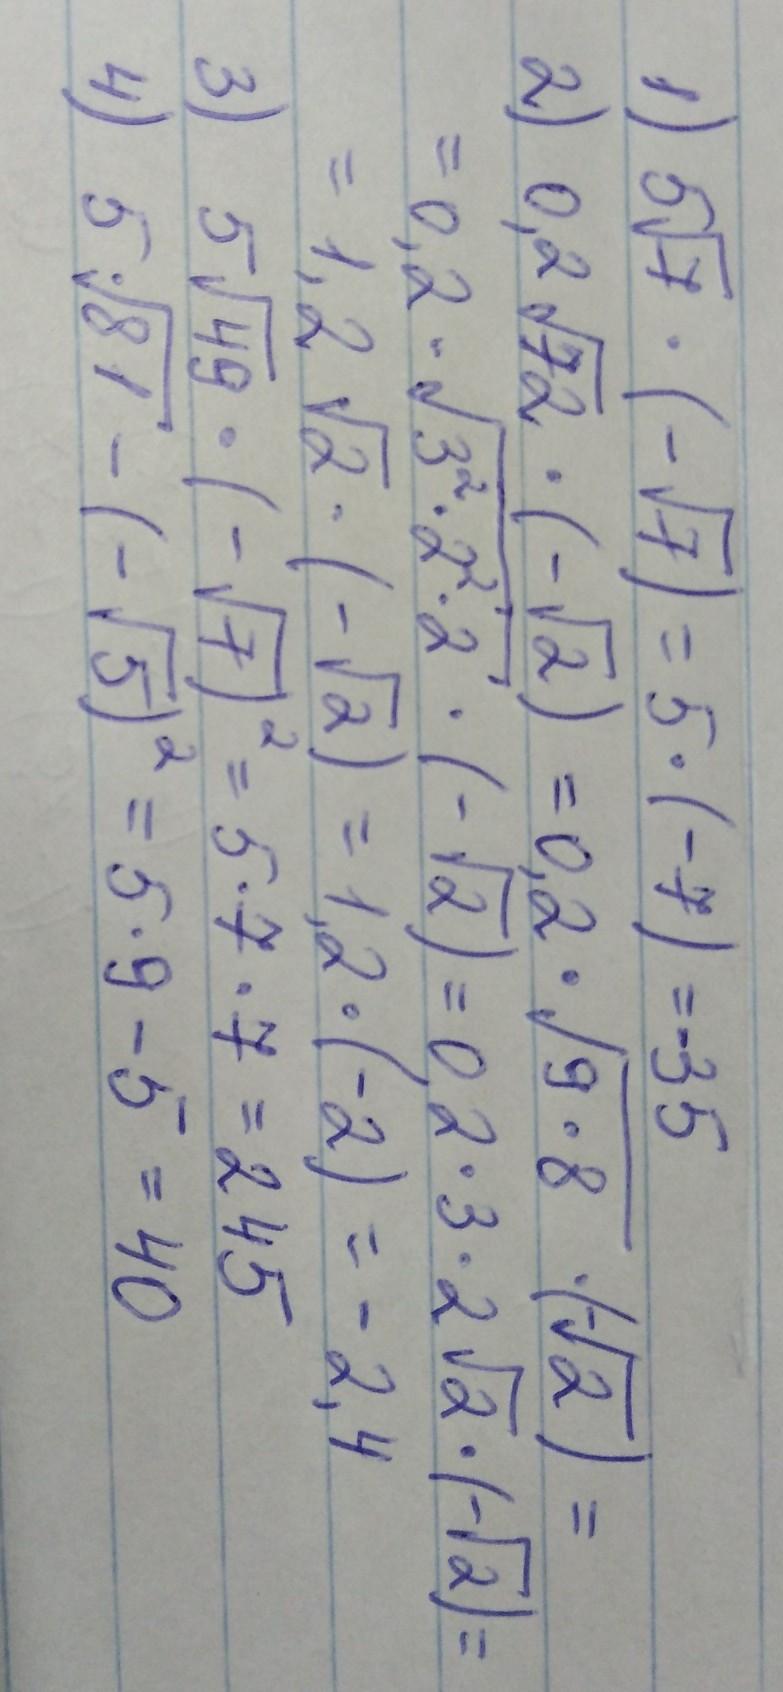 1) 5√7 · (-√7) = 5 · (-7) = -35
2) 0,2√72 · (-√2) = 0,2 · √9·8 · (-√2) =
= 0,2 · √3²·2²·2 · (-√2) = 0,2 · 3 · 2√2 · (-√2) =
= 1,2√2 · (-√2) = 1,2 · (-2) = -2,4
3) 5√49 · (-√7)² = 5 · 7 · 7 = 245
4) 5·√81 - (-√5)² = 5 · 9 - 5 = 40